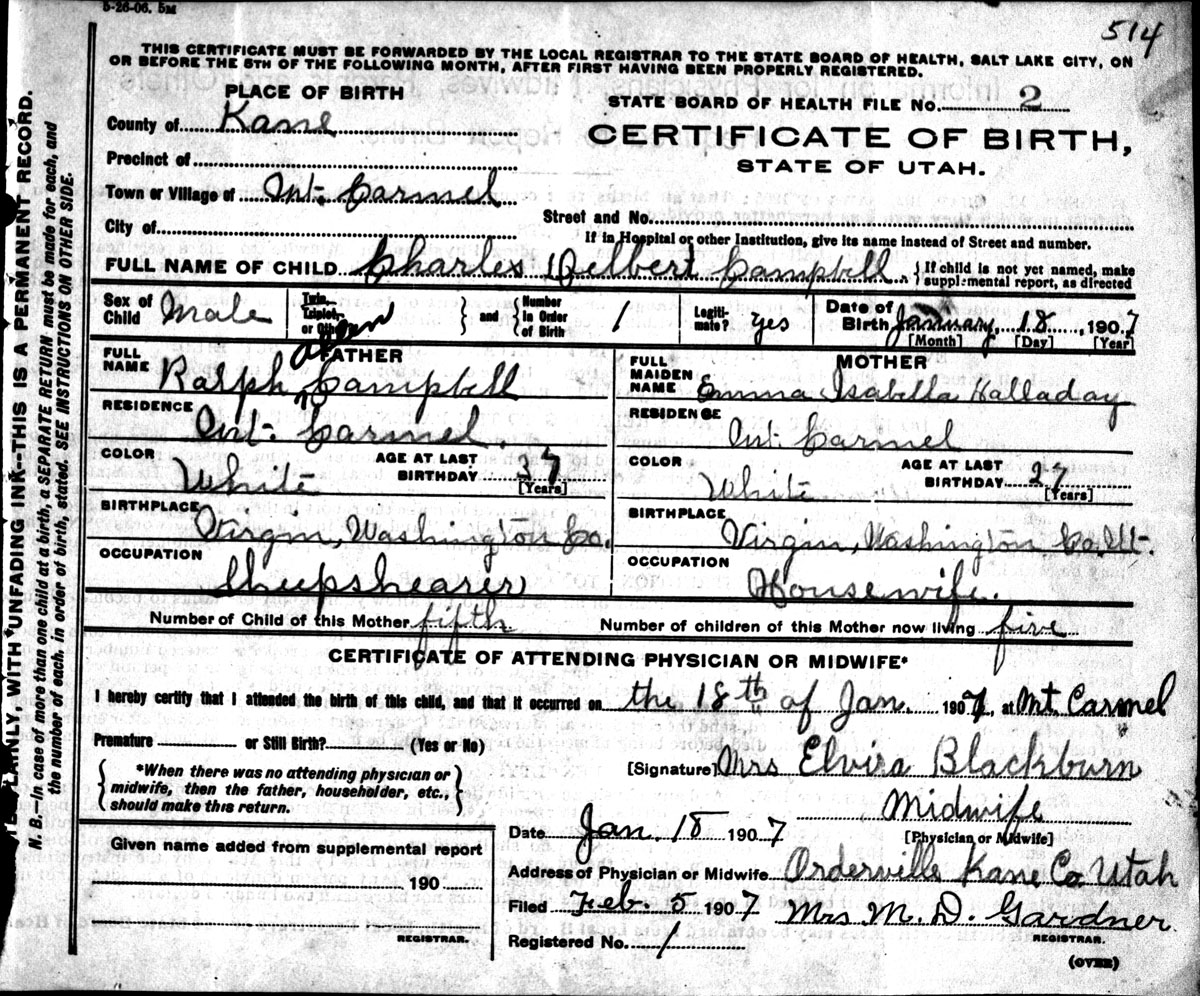 5-26-06. 5M
514
THIS CERTIFICATE MUST BE FORWARDED BY THE LOCAL REGISTRAR TO THE STATE BOARD OF HEALTH, SALT LAKE CITY, ON
OR BEFORE THE 5TH OF THE FOLLOWING MONTH, AFTER FIRST HAVING BEEN PROPERLY REGISTERED.
PLACE OF BIRTH
STATE BOARD OF HEALTH FILE No. 2
County of Kane
CERTIFICATE OF BIRTH,
STATE OF UTAH.
Precinct of
Town or Village of Mt. Carmel
Street and No.
City of
If in Hospital or other Institution, give its name instead of Street and number.
FULL NAME OF CHILD Charles Delbert Campbell. } If child is not yet named, make supplemental report, as directed
Sex of Child Male
Twin, Triplet, or Other } and { Number in Order of Birth 1
Legitimate? yes
Date of Birth January 18, 1907
[Month] [Day] [Year]
FATHER
FULL NAME Ralph Allen Campbell
RESIDENCE Mt. Carmel
COLOR White
AGE AT LAST BIRTHDAY 37 [Years]
BIRTHPLACE Virgin, Washington Co.
OCCUPATION Sheepshearer
MOTHER
FULL MAIDEN NAME Emma Isabella Halladay
RESIDENCE Mt. Carmel
COLOR White
AGE AT LAST BIRTHDAY 27 [Years]
BIRTHPLACE Virgin, Washington Co. Ut.
OCCUPATION Housewife.
Number of Child of this Mother fifth
Number of children of this Mother now living five
CERTIFICATE OF ATTENDING PHYSICIAN OR MIDWIFE*
I hereby certify that I attended the birth of this child, and that it occurred on the 18th of Jan. 1907, at Mt. Carmel
Premature or Still Birth? (Yes or No)
*When there was no attending physician or
midwife, then the father, householder, etc.,
should make this return.
[Signature] Mrs Elvira Blackburn
Midwife
[Physician or Midwife]
Date Jan. 18 1907
Given name added from supplemental report
190
REGISTRAR.
Address of Physician or Midwife Orderville Kane Co Utah
Filed Feb. 5 1907 Mrs M. D. Gardner
REGISTRAR.
Registered No. 1
(OVER)
PLAINLY, WITH UNFADING INK--THIS IS A PERMANENT RECORD.
N. B.--In case of more than one child at a birth, a SEPARATE RETURN must be made for each, and
the number of each, in order of birth, stated. SEE INSTRUCTIONS ON OTHER SIDE.